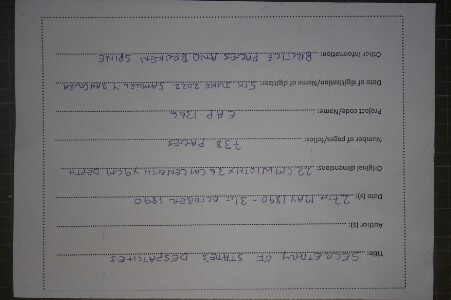 Title: SECRETARY OF STATES DESPATCHES
Author (s):
Date (s): 27TH MAY 1890 - 31ST OCTOBER 1890
Original dimensions: 22CM WIDTH X 36CM LENGTH X 9CM DEPTH
Number of pages/folios: 738 PAGES
Project code/Name: EAP 1366
Date of digitisation/Name of digitizer: 5TH JUNE 2022 SAMUEL Y
Other information: BRITTLE PAGES AND BROKEN SPINE